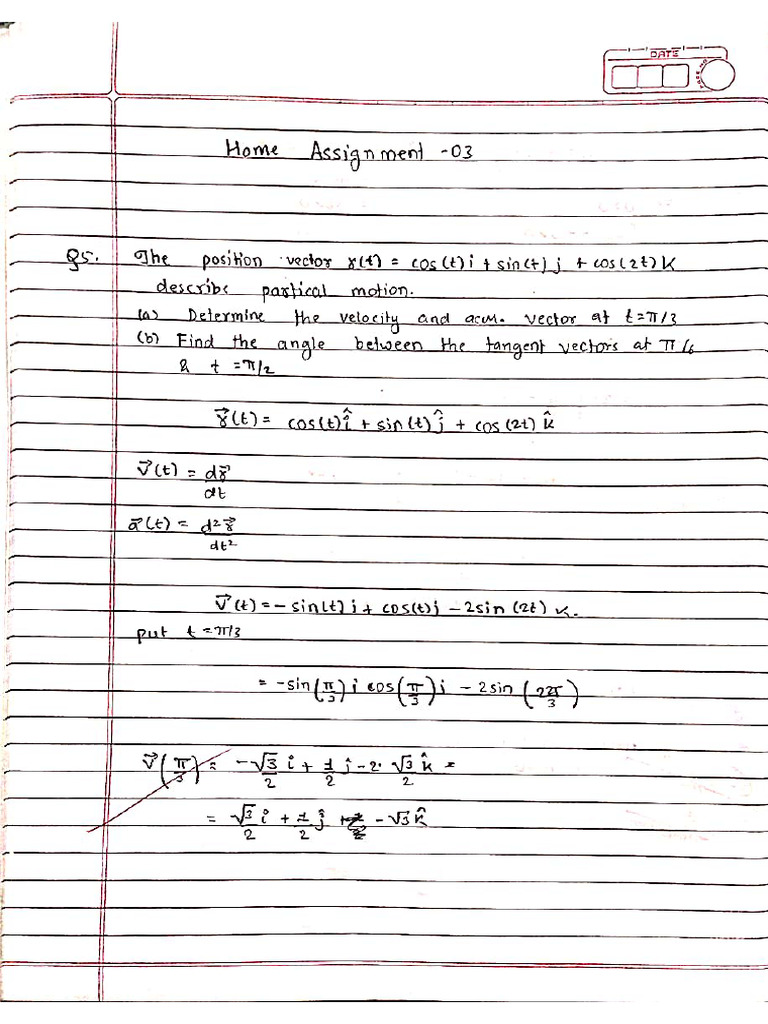 DATE
Home Assignment -03
Q5. The position vector r(t) = cos(t)i + sin(t)j + cos(2t)k
describe partical motion.
(a) Determine the velocity and accn. vector at t=π/3
(b) Find the angle between the tangent vectors at π/6
& t = π/2
r⃗(t) = cos(t)î + sin(t)ĵ + cos(2t) k̂
v⃗(t) = dr⃗/dt
a⃗(t) = d²r⃗/dt²
v⃗(t) = -sin(t)i + cos(t)j - 2sin(2t) k.
put t = π/3
= -sin(π/3)i cos(π/3)j - 2sin(2π/3)
v⃗(π/3) = -√3/2 i + 1/2 ĵ - 2·√3/2 k̂ =
= √3/2 i + 1/2 ĵ - √3 k̂